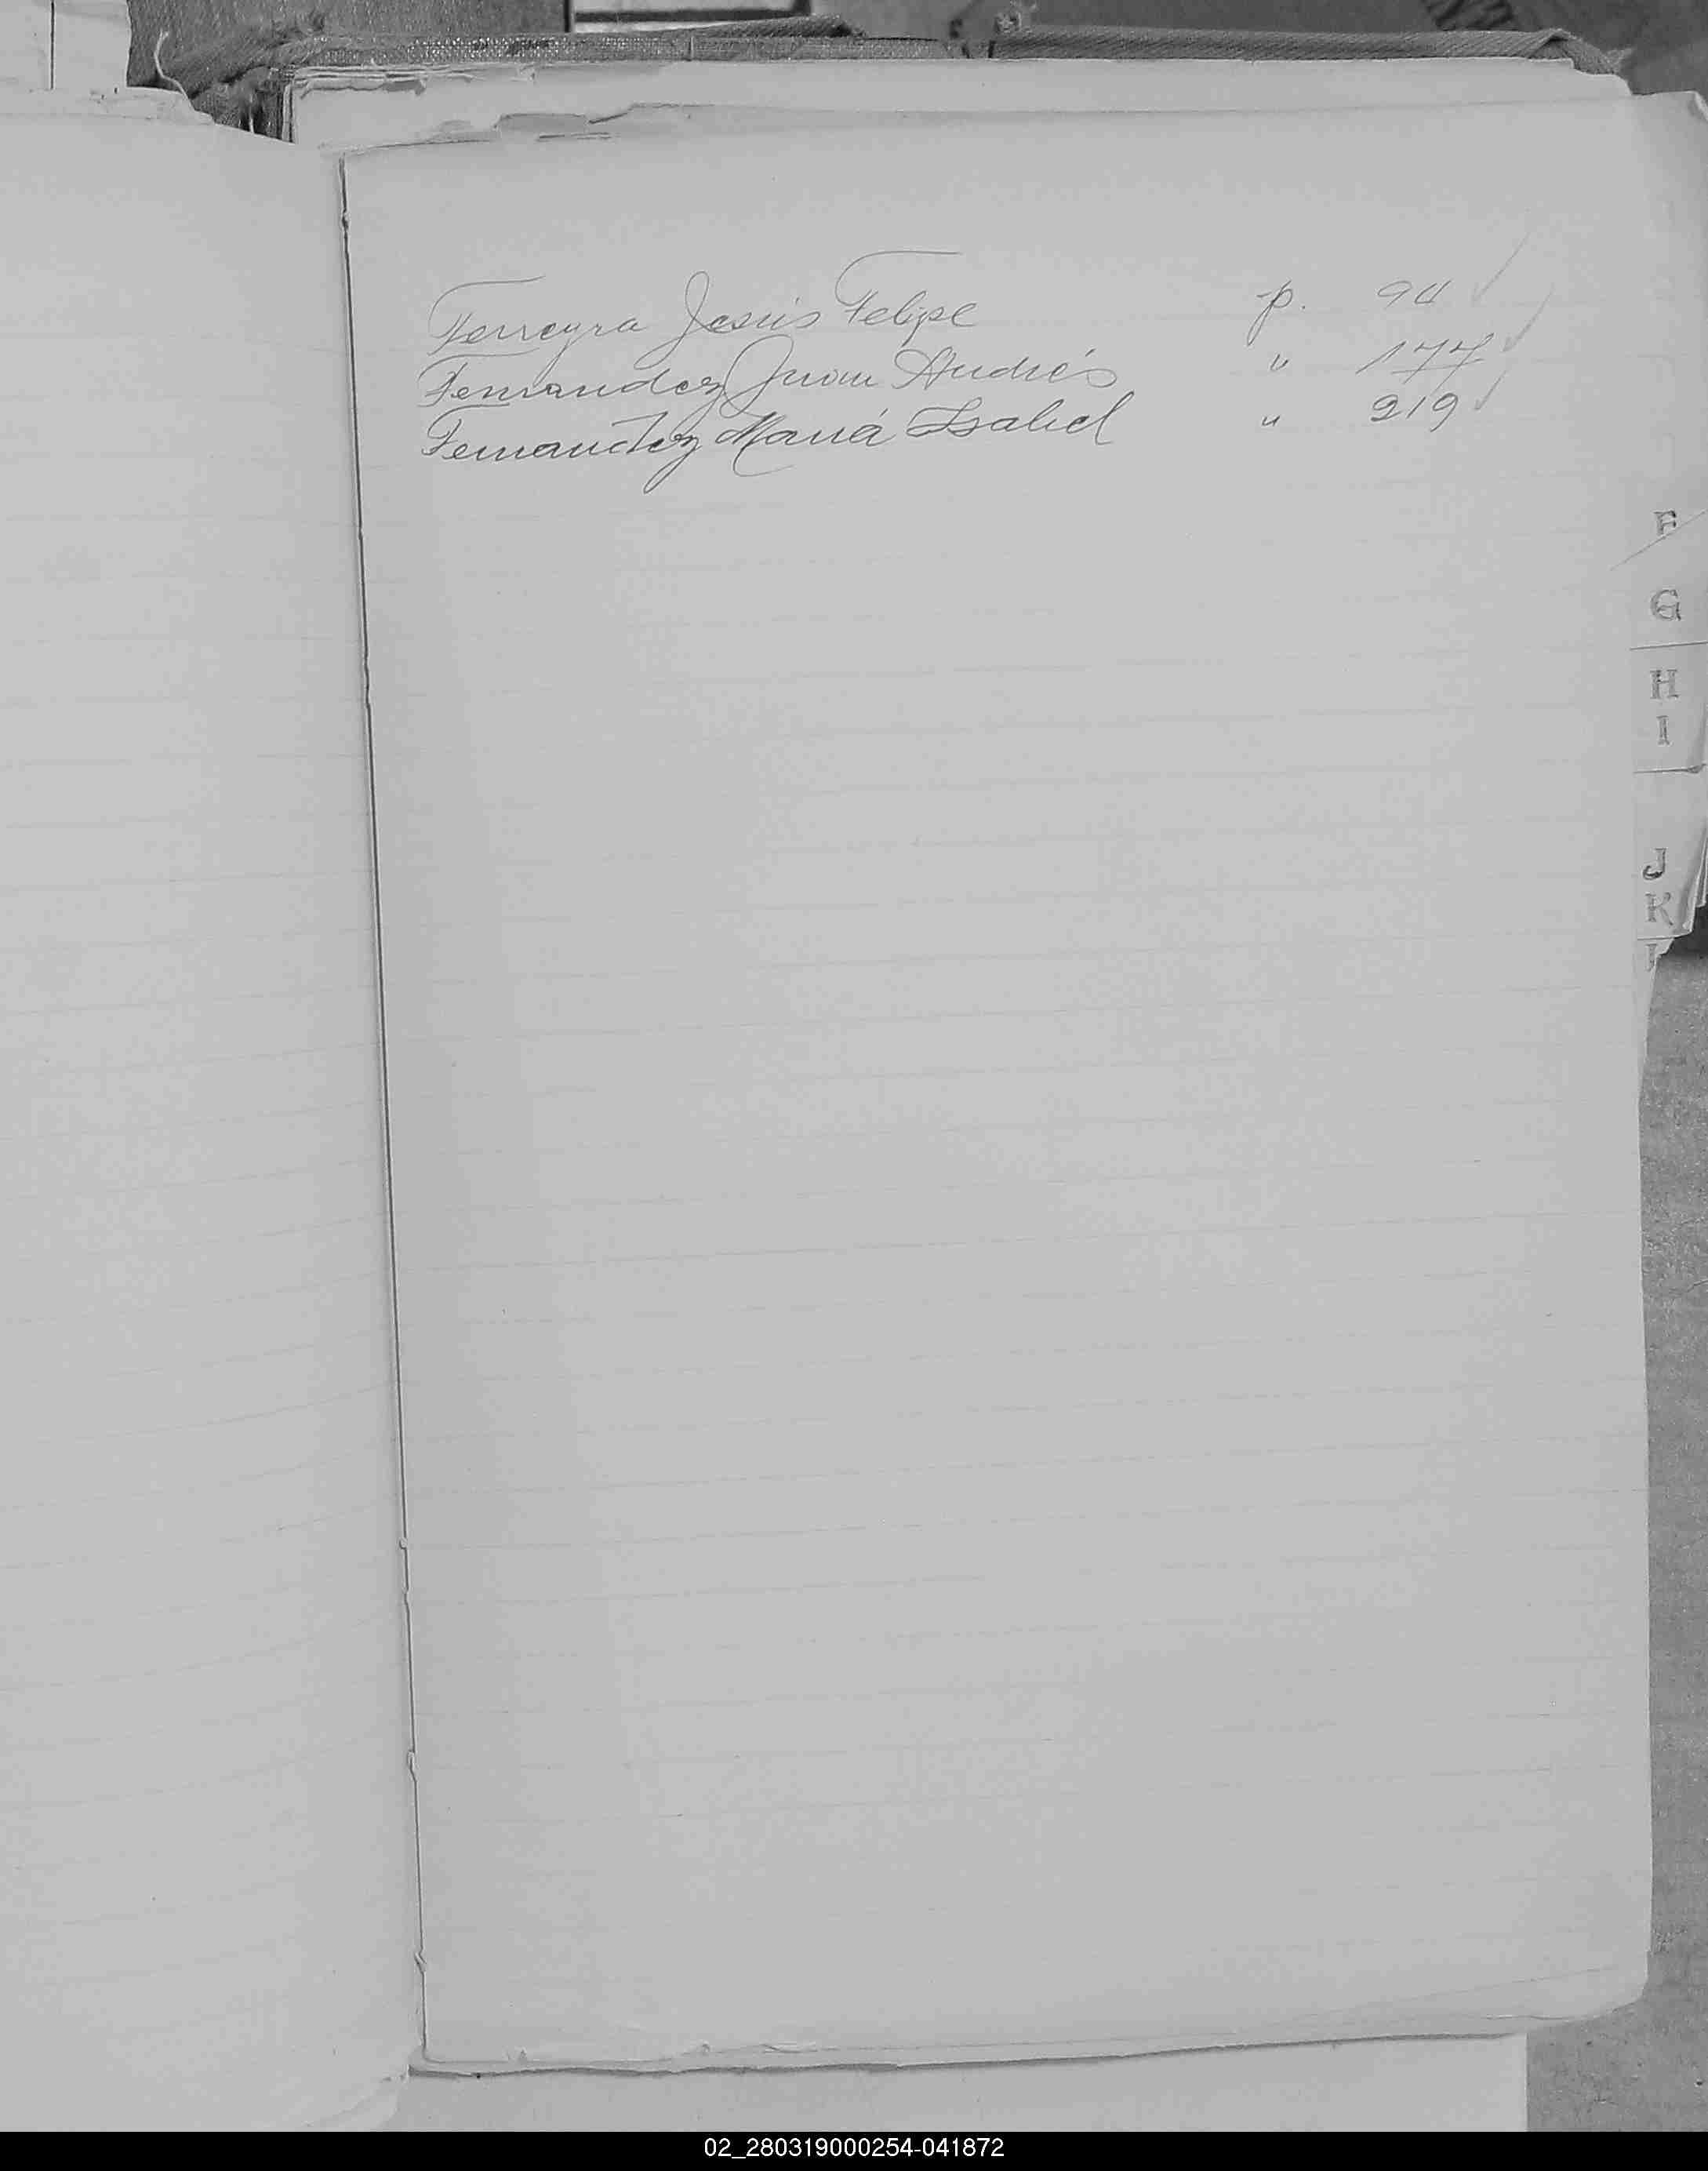 Ferreyra Jesús Felipe p. 94
Fernandez Juan Andrés " 177
Fernandez María Isabel " 219
F
G
H
I
J
K
02_280319000254-041872